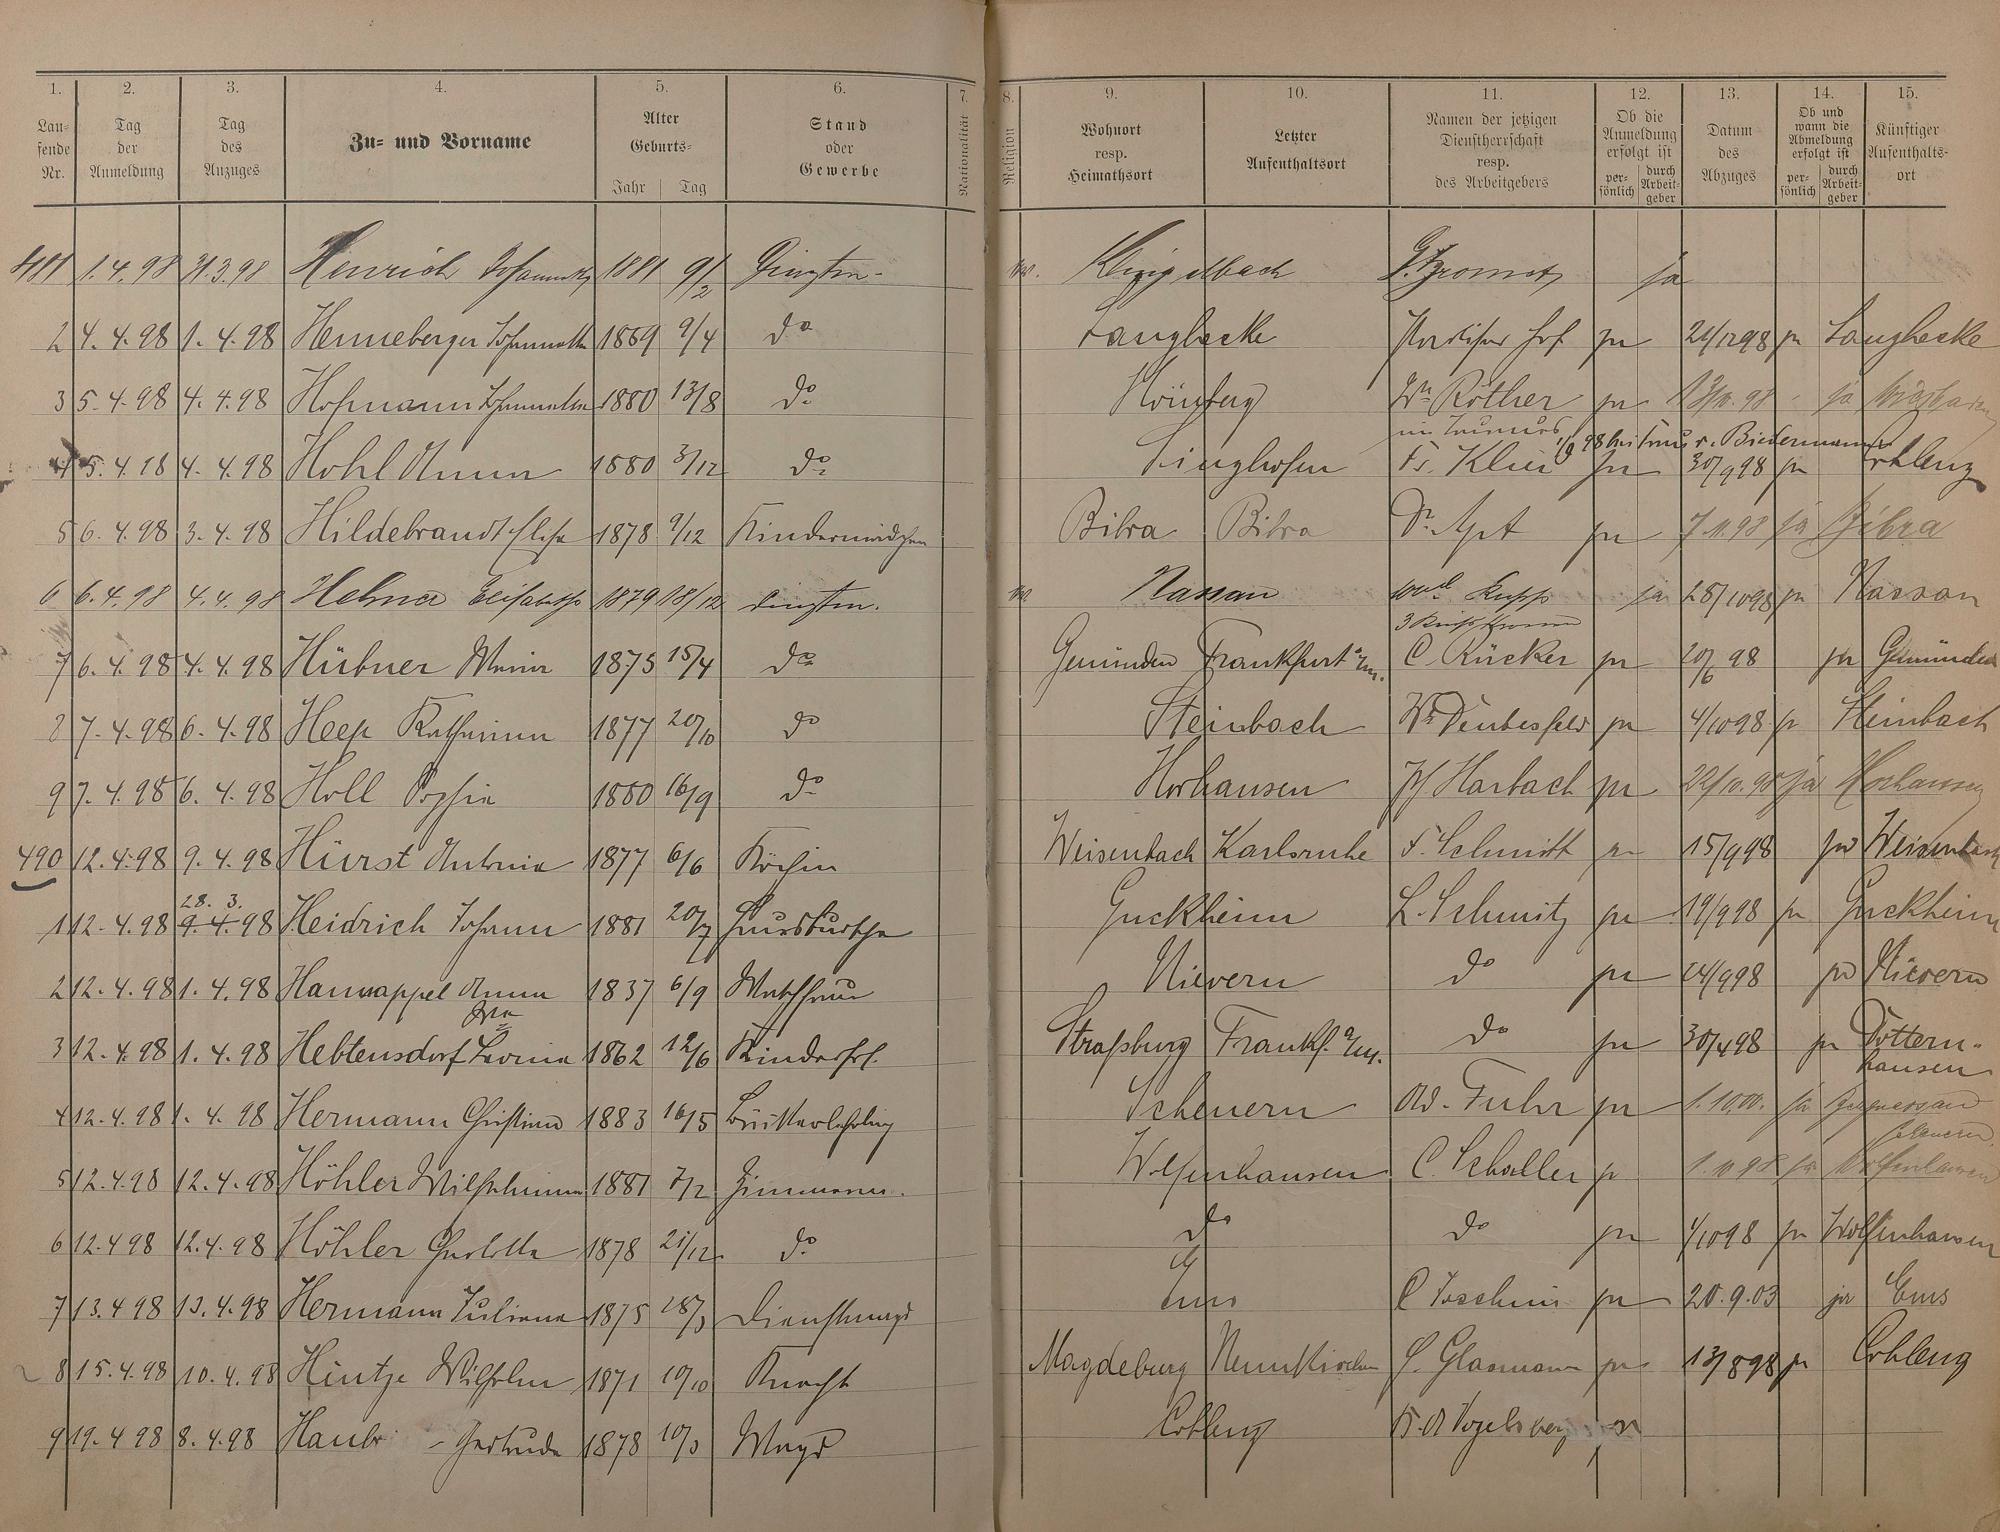 1. 2. 3. 4. 5. 6. 7. 8. 9. 10. 11. 12. 13. 14. 15.
Lau-
fende
Nr.
Tag
der
Anmeldung
Tag
des
Anzuges
Zu- und Vorname
Alter
Geburts-
Jahr Tag
Stand
oder
Gewerbe
Nationalität
Religion
Wohnort
resp.
Heimathsort
Letzter
Aufenthaltsort
Namen der jetzigen
Dienstherrschaft
resp.
des Arbeitgebers
Ob die
Anmeldung
erfolgt ist
per-
sönlich
durch
Arbeit-
geber
Datum
des
Abzuges
Ob und
wann die
Abmeldung
erfolgt ist
per-
sönlich
durch
Arbeit-
geber
Künftiger
Aufenthalts-
ort
481 1.4.98 31.3.98 Hinrich 1881 9/2 ja
2 4.4.98 1.4.98 Henneberger 1869 9/4 do Langhecke Hof ja 21/12 98 ja Langhecke
3 5.4.98 4.4.98 Hofmann 1880 13/8 do Wwe Röther ja ja
4 5.4.98 4.4.98 Hohl Anna 1880 3/12 do Singhofen ja 30/9 98 ja Coblenz
5 6.4.98 3.4.98 Hildebrandt Elise 1878 9/12 Kindermädchen Bibra Bibra Dr. Apt ja 7.11.98 ja Bibra
6 6.4.98 4.4.98 Elisabeth 1879 18/12 Nassau ja 28/10 98 ja Nassau
7 6.4.98 4.4.98 Hübner Maria 1875 15/4 do Gemünden Frankfurt a/M. C. Rücker ja 20/6 98 ja Gemünden
8 7.4.98 6.4.98 Heep Katharina 1877 20/10 do Steinbach ja 4/10 98 ja Steinbach
9 7.4.98 6.4.98 Holl Sophie 1880 16/9 do Horhausen Harbach ja 22/10.98 ja Horhausen
490 12.4.98 9.4.98 Hürst Antonia 1877 6/6 Köchin Weisenbach Karlsruhe F. Schmitt ja 15/9 98 ja Weisenbach
28. 3.
1 12.4.98 9.4.98 Heidrich Johann 1881 20/7 Hausbursche Guckheim L. Schmitz ja 19/9 98 ja Guckheim
2 12.4.98 1.4.98 Hannappel Anna 1837 6/9 Waschfrau Nievern do ja 24/9 98 ja Nievern
Wwe
3 12.4.98 1.4.98 1862 12/6 Kinderfrl. Straßburg Frankf. a/M. do ja 30/4 98 ja Dottern-
hausen
4 12.4.98 1.4.98 Hermann Christian 1883 16/5 Scheuern Ad. Fuhr ja 1.10.00. ja
Scheuern
5 12.4.98 12.4.98 Höhler Wilhelmine 1881 7/2 Zimmerm. Wolfenhausen C. Schaller ja 1.10.98 ja Wolfenhausen
6 12.4.98 12.4.98 Höhler Charlotte 1878 21/12 do do do ja 1/10 98 ja Wolfenhausen
7 13.4.98 13.4.98 Hermann Juliana 1875 28/3 Dienstmagd Ems ja 20.9.03 ja Ems
8 15.4.98 10.4.98 Hintze Wilhelm 1871 10/10 Knecht Magdeburg Neunkirchen Glasmann ja 13/8 98 ja Coblenz
9 19.4.98 8.4.98 Gertrude 1878 10/3 Magd Coblenz Vogelsberg